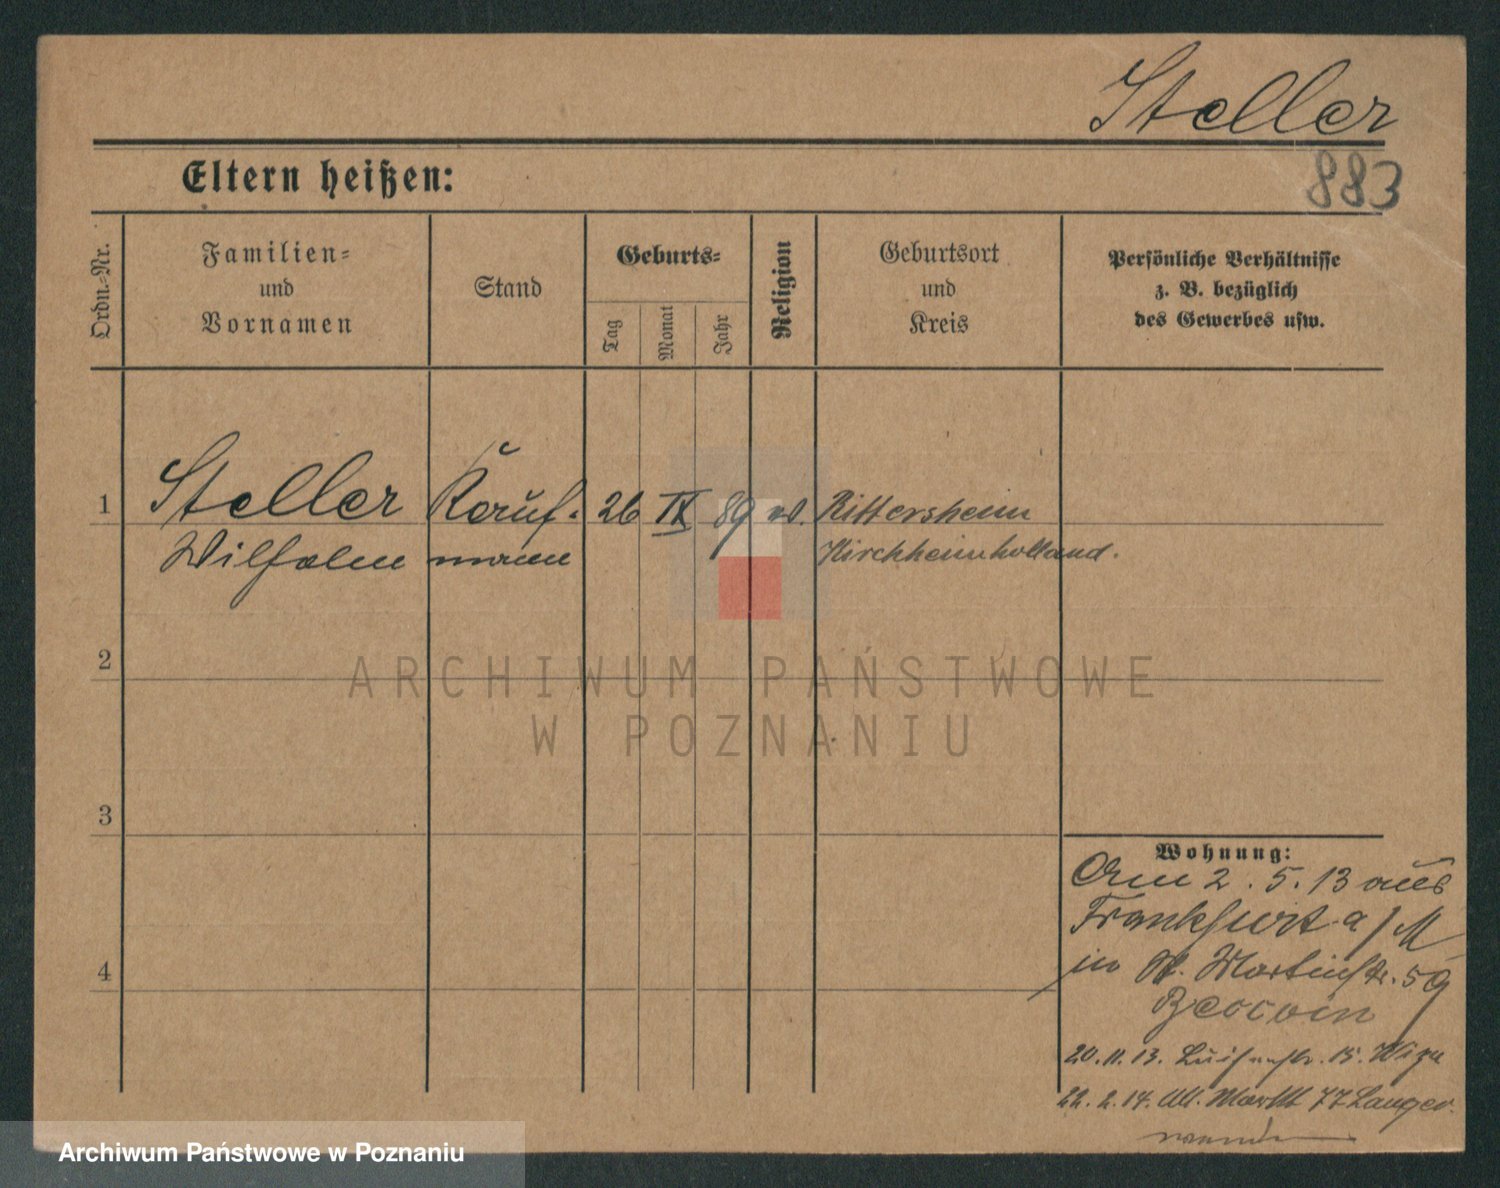 Steller
883
Eltern heißen:
Ordn.-Nr.
Familien-
und
Vornamen
Stand
Geburts-
Tag
Monat
Jahr
Religion
Geburtsort
und
Kreis
Persönliche Verhältnisse
z. B. bezüglich
des Gewerbes usw.
1
Steller
Wilhelm
Kauf-
mann
26
IX
89
Rittersheim
Kirchheimbolland.
2
3
4
Wohnung:
Am 2.5.13 aus
Frankfurt a/M
in St. Martinstr. 59
20.11.13. Luisenstr. 15.
22.2.14. Alt. Markt 77 Langer
ARCHIWUM PAŃSTWOWE
W POZNANIU
Archiwum Państwowe w Poznaniu